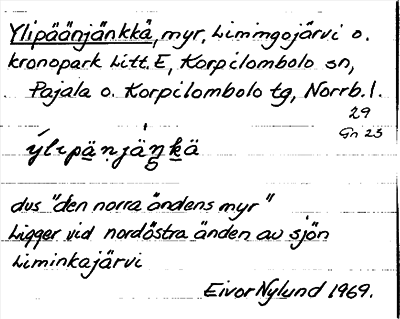 Ylipäänjänkkä, myr, Limingojärvi o.
kronopark Litt. E, Korpilombolo sn,
Pajala o. Korpilombolo tg, Norrb. l.
29
Gn 25
ýlɩpänjäŋkä
dvs "den norra ändens myr"
Ligger vid nordöstra änden av sjön
Liminkajärvi
Eivor Nylund 1969.